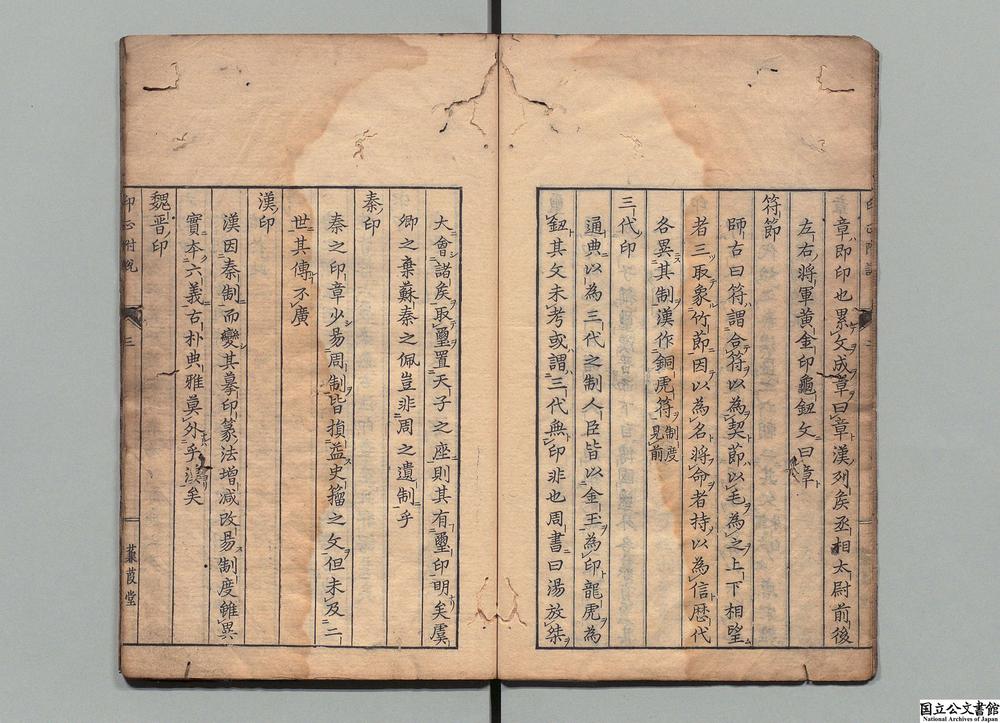 章即印也累文成章曰章漢列矦丞相太尉前後
左右將軍黃金印龜鈕文曰章
符節
師古曰符謂合符以為契節以毛為之上下相望
者三取象竹節因以為名將命者持以為信歴代
各異其制漢作銅虎符制度見前
三代印
通典以為三代之制人臣皆以金玉為印龍虎為
鈕其文未考或謂三代無印非也周書曰湯放桀
大會諸矦取璽置天子之座則其有璽印明矣虞
卿之棄蘇秦之佩豈非周之遺制乎
秦印
秦之印章少易周制皆損益史籀之文但未及二
世其傳不廣
漢印
漢因秦制而變其摹印篆法增減改易制度雖異
實本六義古朴典雅莫外乎漢矣
魏晋印
印正附説
三
蒹葭堂
国立公文書館
National Archives of Japan